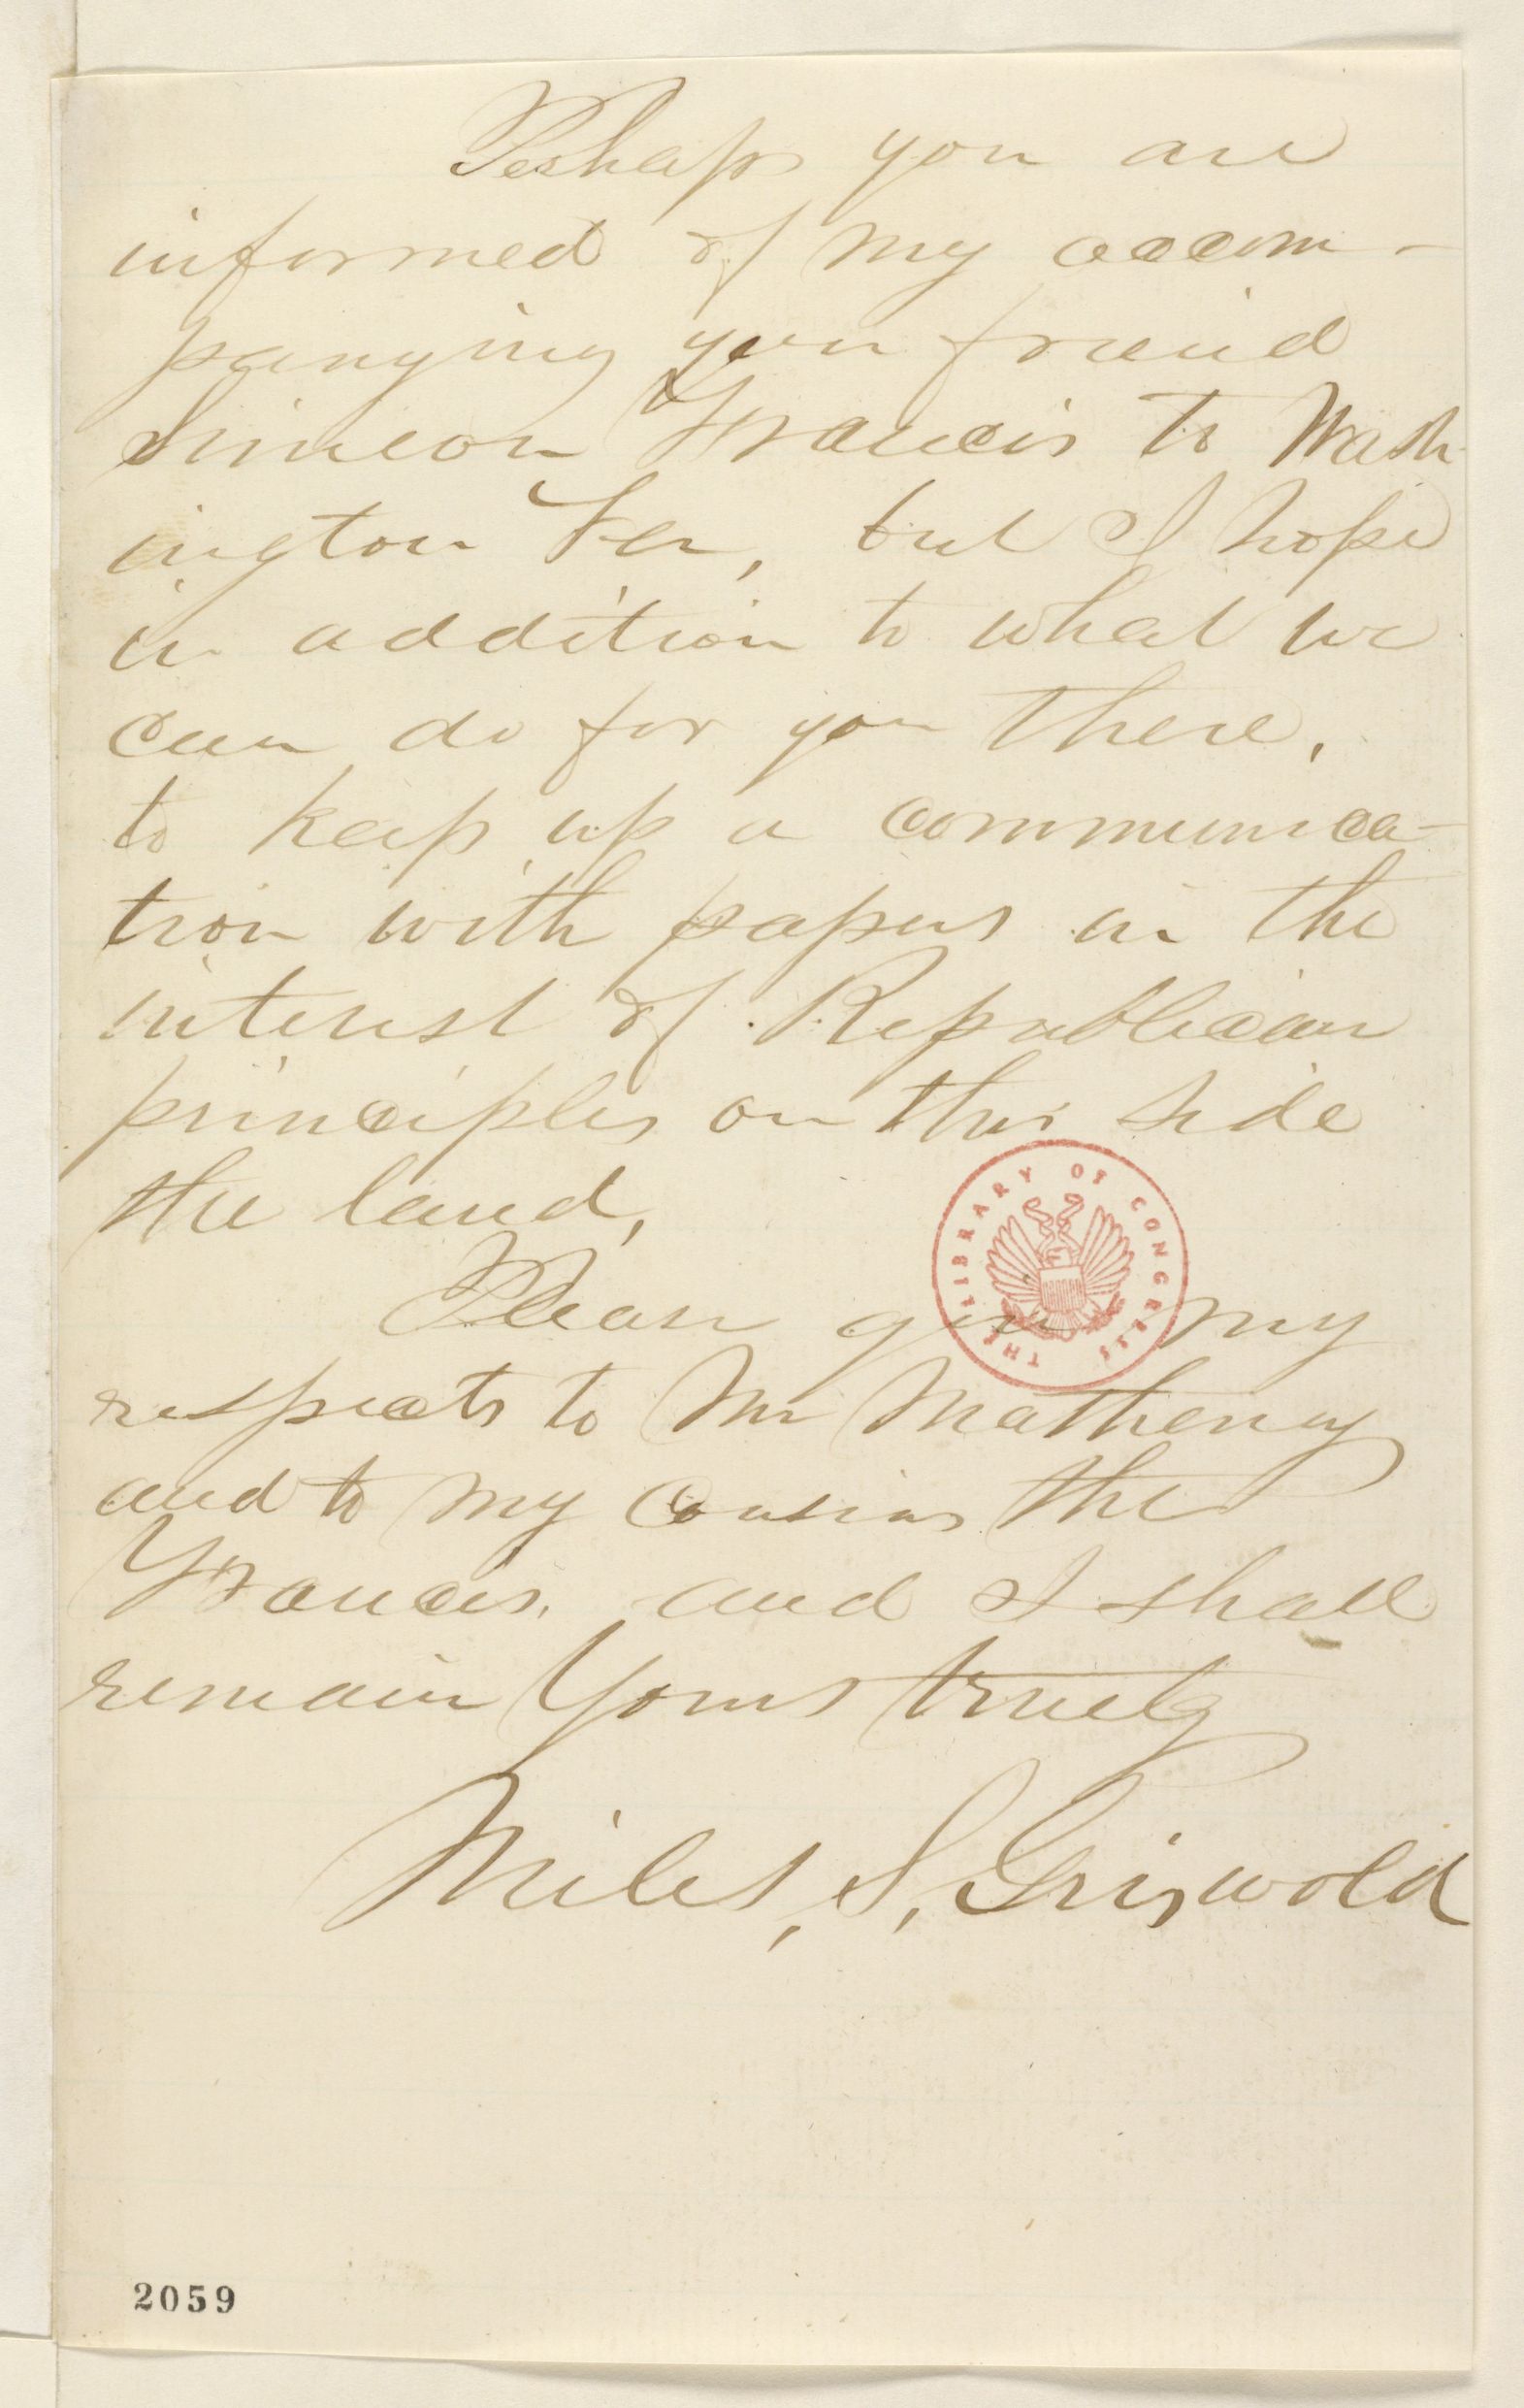 Perhaps you are
informed of my accom-
panying your friend
Simeon Francis to Wash
ington Ter, but I hope
in addition to what we
can do for you there,
to keep up a communica-
tion with papers in the
interest of Republican
principles on this side
the land,
Please give my
respects to Mr Matheny
and to my cousins the
Francis, and I shall
remain Yours truly
Miles, S, Griswold
THE LIBRARY OF CONGRESS
2059